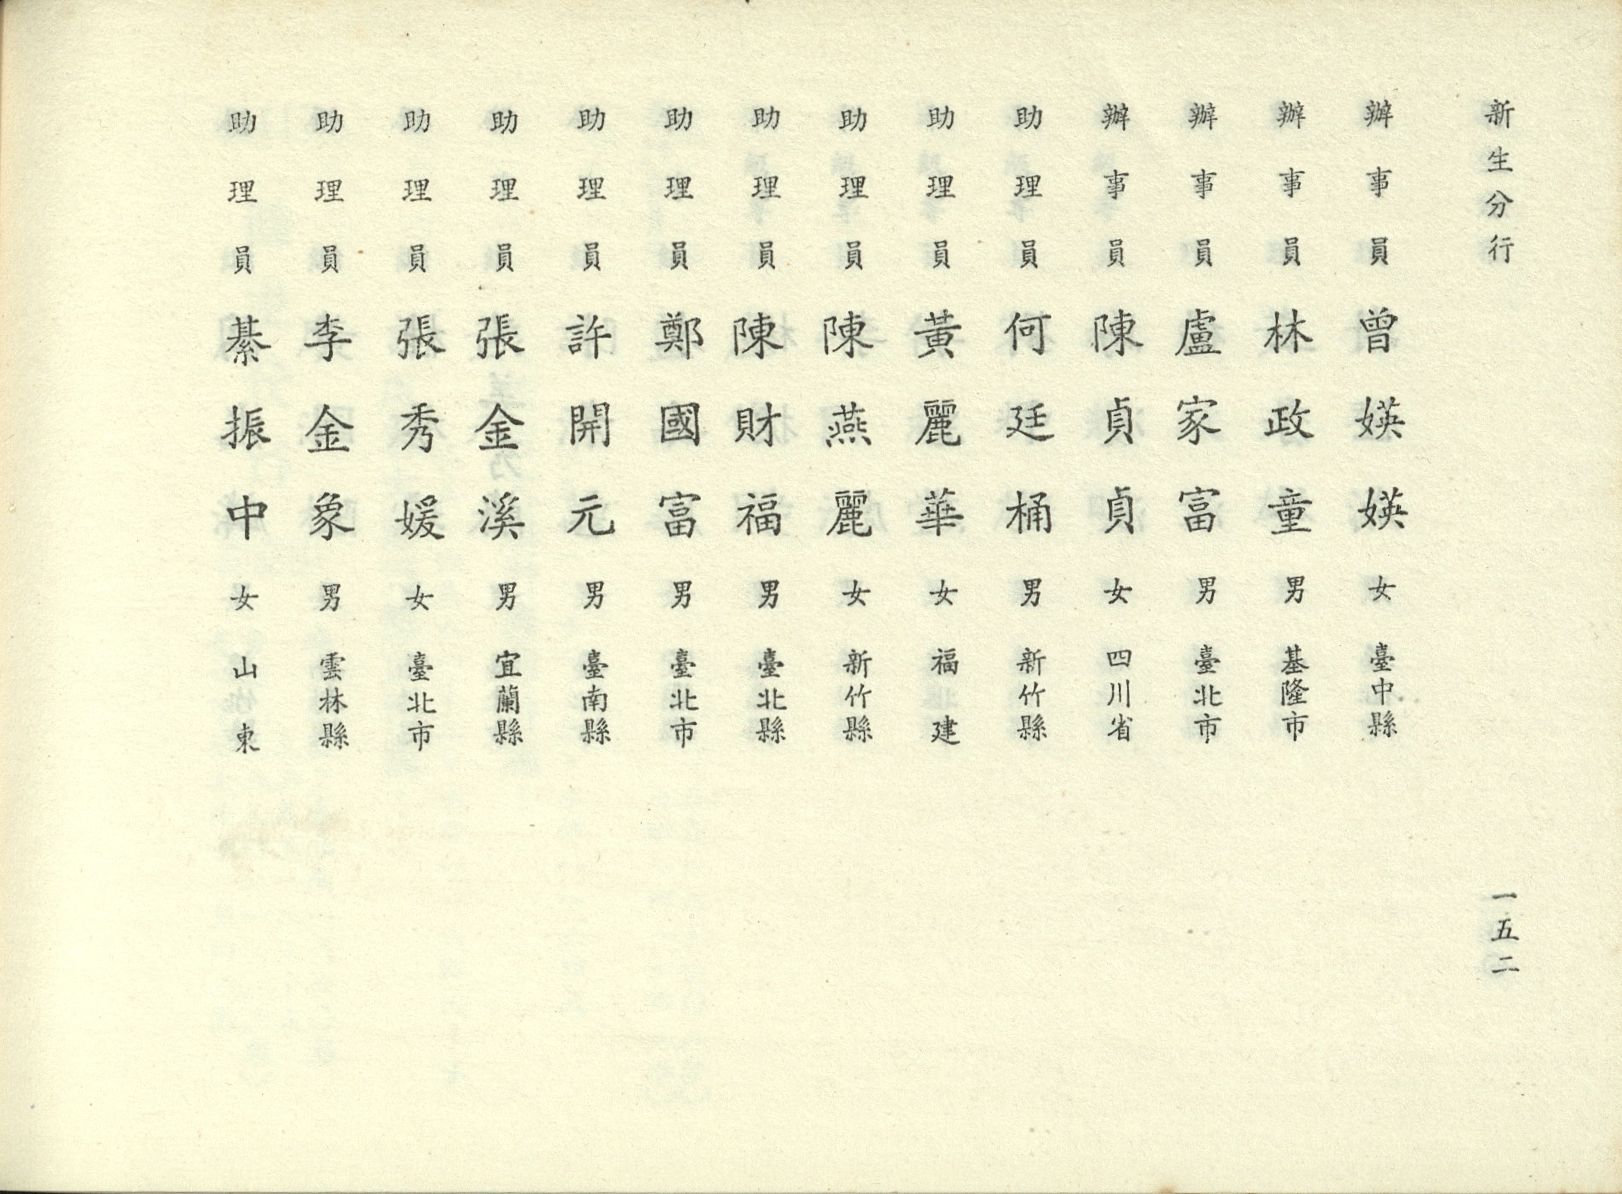 新生分行
一五二
辦事員 曾媖媖 女 臺中縣
辦事員 林政童 男 基隆市
辦事員 盧家富 男 臺北市
辦事員 陳貞貞 女 四川省
助理員 何廷桶 男 新竹縣
助理員 黃麗華 女 福建
助理員 陳燕麗 女 新竹縣
助理員 陳財福 男 臺北縣
助理員 鄭國富 男 臺北市
助理員 許開元 男 臺南縣
助理員 張金溪 男 宜蘭縣
助理員 張秀媛 女 臺北市
助理員 李金象 男 雲林縣
助理員 綦振中 女 山東